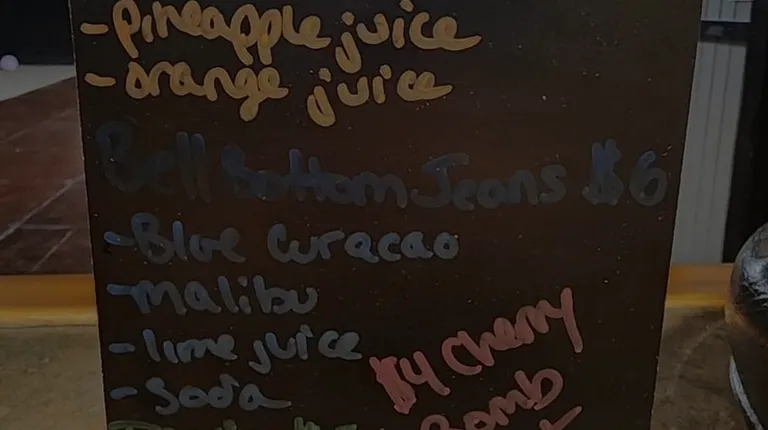 - pineapple juice
- orange juice
Bell Bottom Jeans $6
- Blue Curacao
- malibu
- lime juice
- soda
$4 Cherry
Bomb